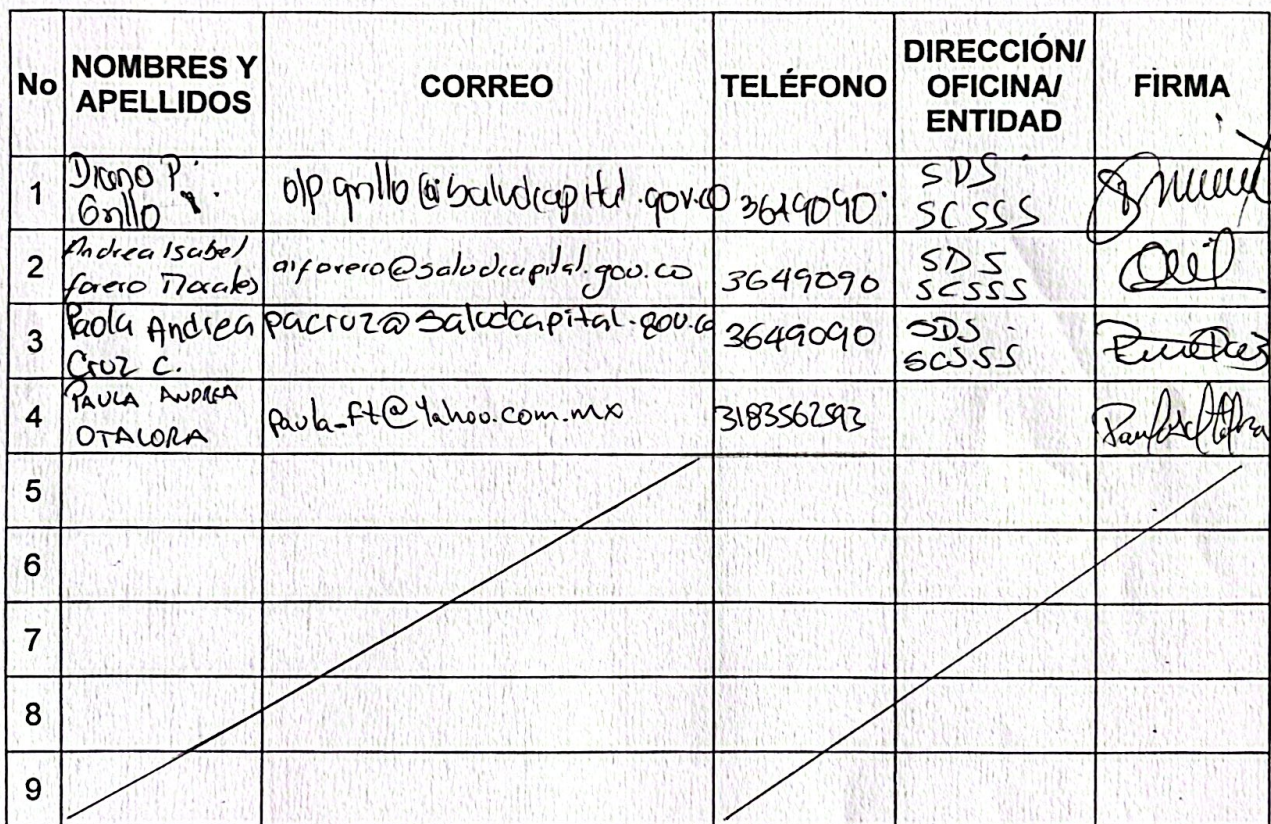 No NOMBRES Y APELLIDOS CORREO TELÉFONO DIRECCIÓN/ OFICINA/ ENTIDAD FIRMA
1 Diana P. Grillo dpgrillo@saludcapital.gov.co 3649090 SDS SCSSS
2 Andrea Isabel forero Morales aiforero@saludcapital.gov.co 3649090 SDS SCSSS
3 Paola Andrea Cruz C. pacruz@saludcapital.gov.co 3649090 SDS SCSSS
4 PAULA ANDREA OTALORA Paula_ft@Yahoo.com.mx 3183562593
5
6
7
8
9